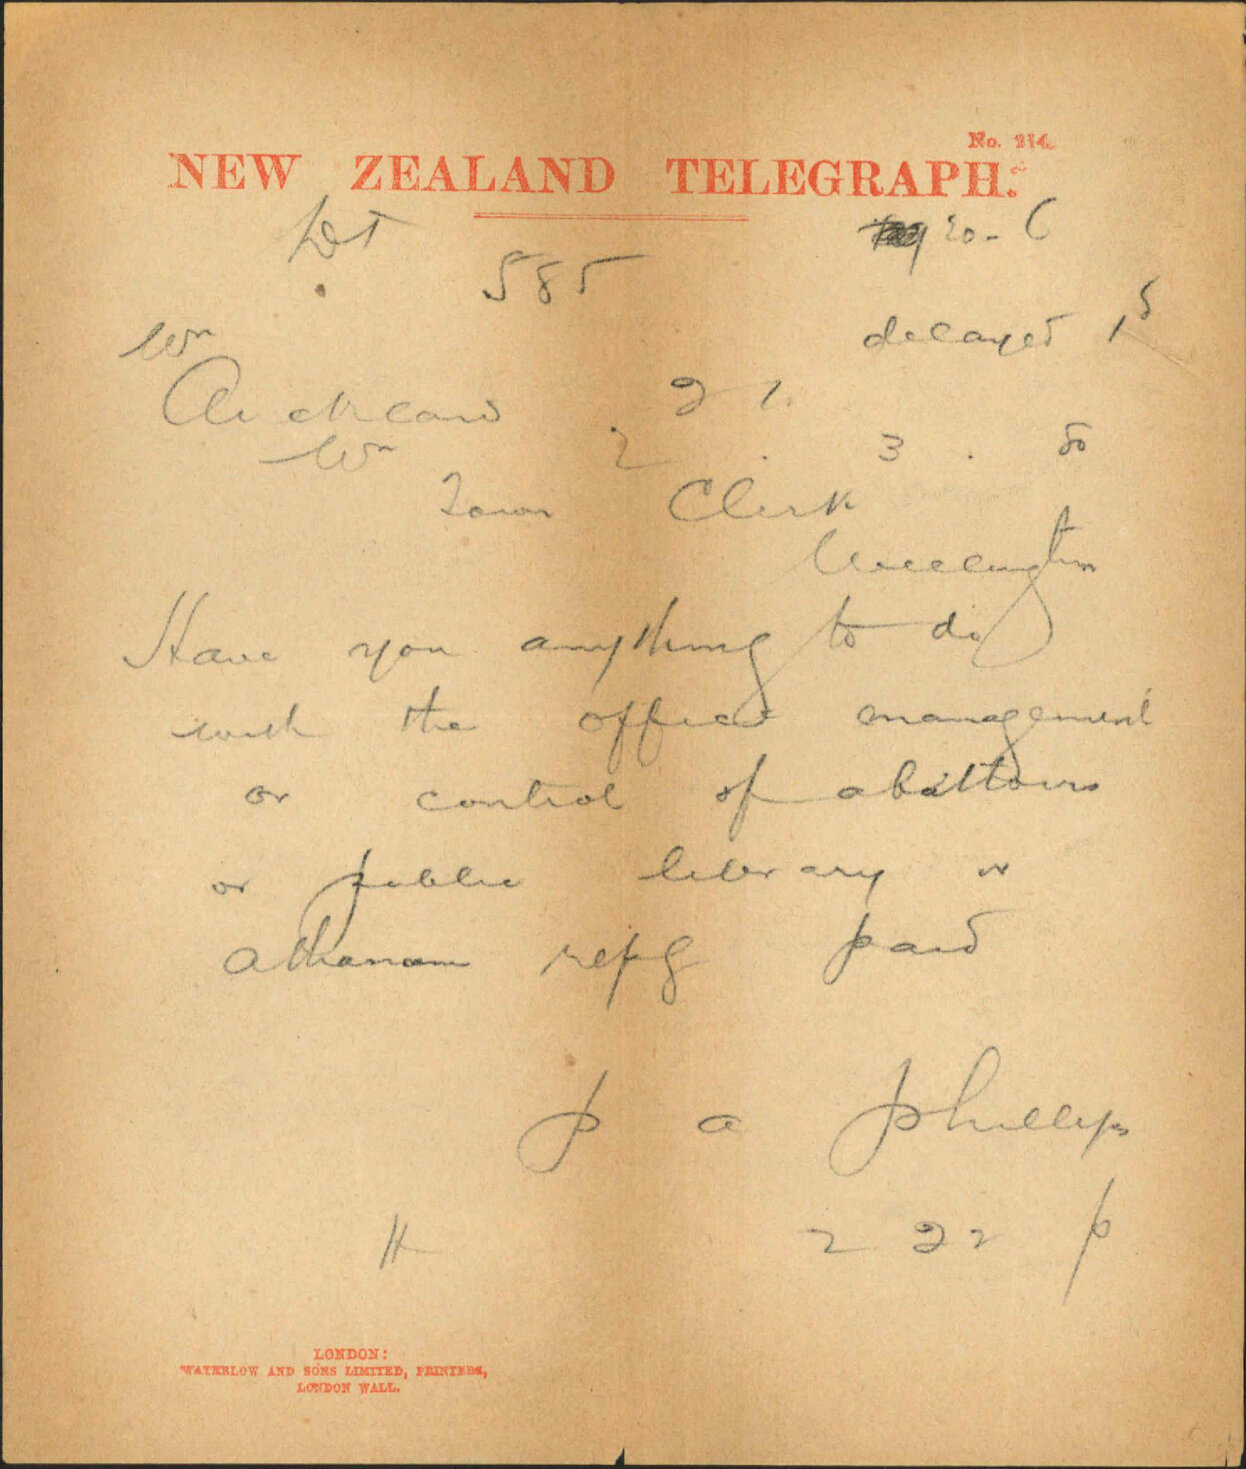 No. 214.
NEW ZEALAND TELEGRAPH.
20 - 6
585
delayed 15
Wn
Auckland 21.
Wn 2 . 3 . 80
Town Clerk
Wellington
Have you anything to do
with the office management
or control of abattoirs
or public library or
athanam reply paid
P a Phillips
H 2 22 p
LONDON:
WATERLOW AND SONS LIMITED, PRINTERS,
LONDON WALL.